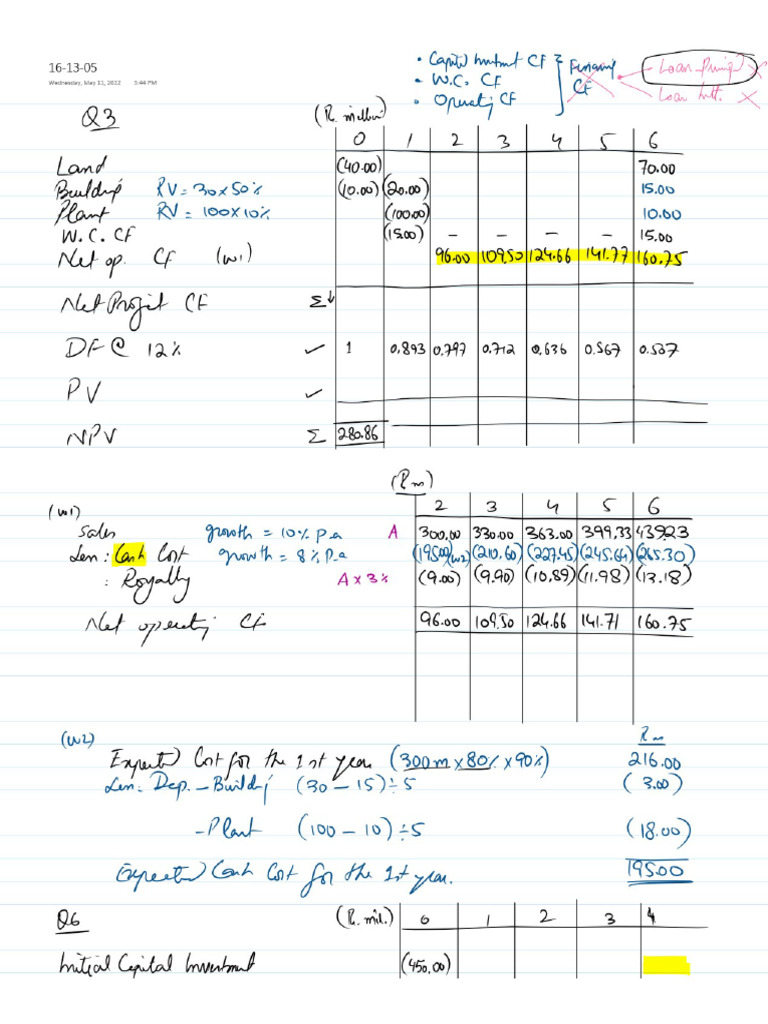 16-13-05
Wednesday, May 11, 2022 5:44 PM
• Capital Investment CF
• W.C. CF
• Operating CF
Financing CF
Loan Principal
Loan Intt.
Q3 (R. million)
0 1 2 3 4 5 6
Land (40.00) 70.00
Building RV = 30 x 50% (10.00) (20.00) 15.00
Plant RV = 100 x 10% (100.00) 10.00
W.C. CF (15.00) – – – – 15.00
Net op. CF (W1) 96.00 109.50 124.66 141.77 160.75
Net Project CF Σ↓
DF @ 12% ✓ 1 0.893 0.797 0.712 0.636 0.567 0.507
PV ✓
NPV Σ 280.86
(W1) (Rm)
2 3 4 5 6
Sales growth = 10% p.a A 300.00 330.00 363.00 399.33 439.23
Less: Cash Cost growth = 8% p.a (195.00)(W2) (210.60) (227.45) (245.64) (265.30)
: Royalty A x 3% (9.00) (9.90) (10.89) (11.98) (13.18)
Net operating CF 96.00 109.50 124.66 141.71 160.75
(W2) Rm
Expected Cost for the 1st year (300m x 80% x 90%) 216.00
Less: Dep. – Building (30 – 15) ÷ 5 (3.00)
– Plant (100 – 10) ÷ 5 (18.00)
Expected Cash Cost for the 1st year. 195.00
Q6 (R. mil.) 0 1 2 3 4
Initial Capital Investment (450.00)